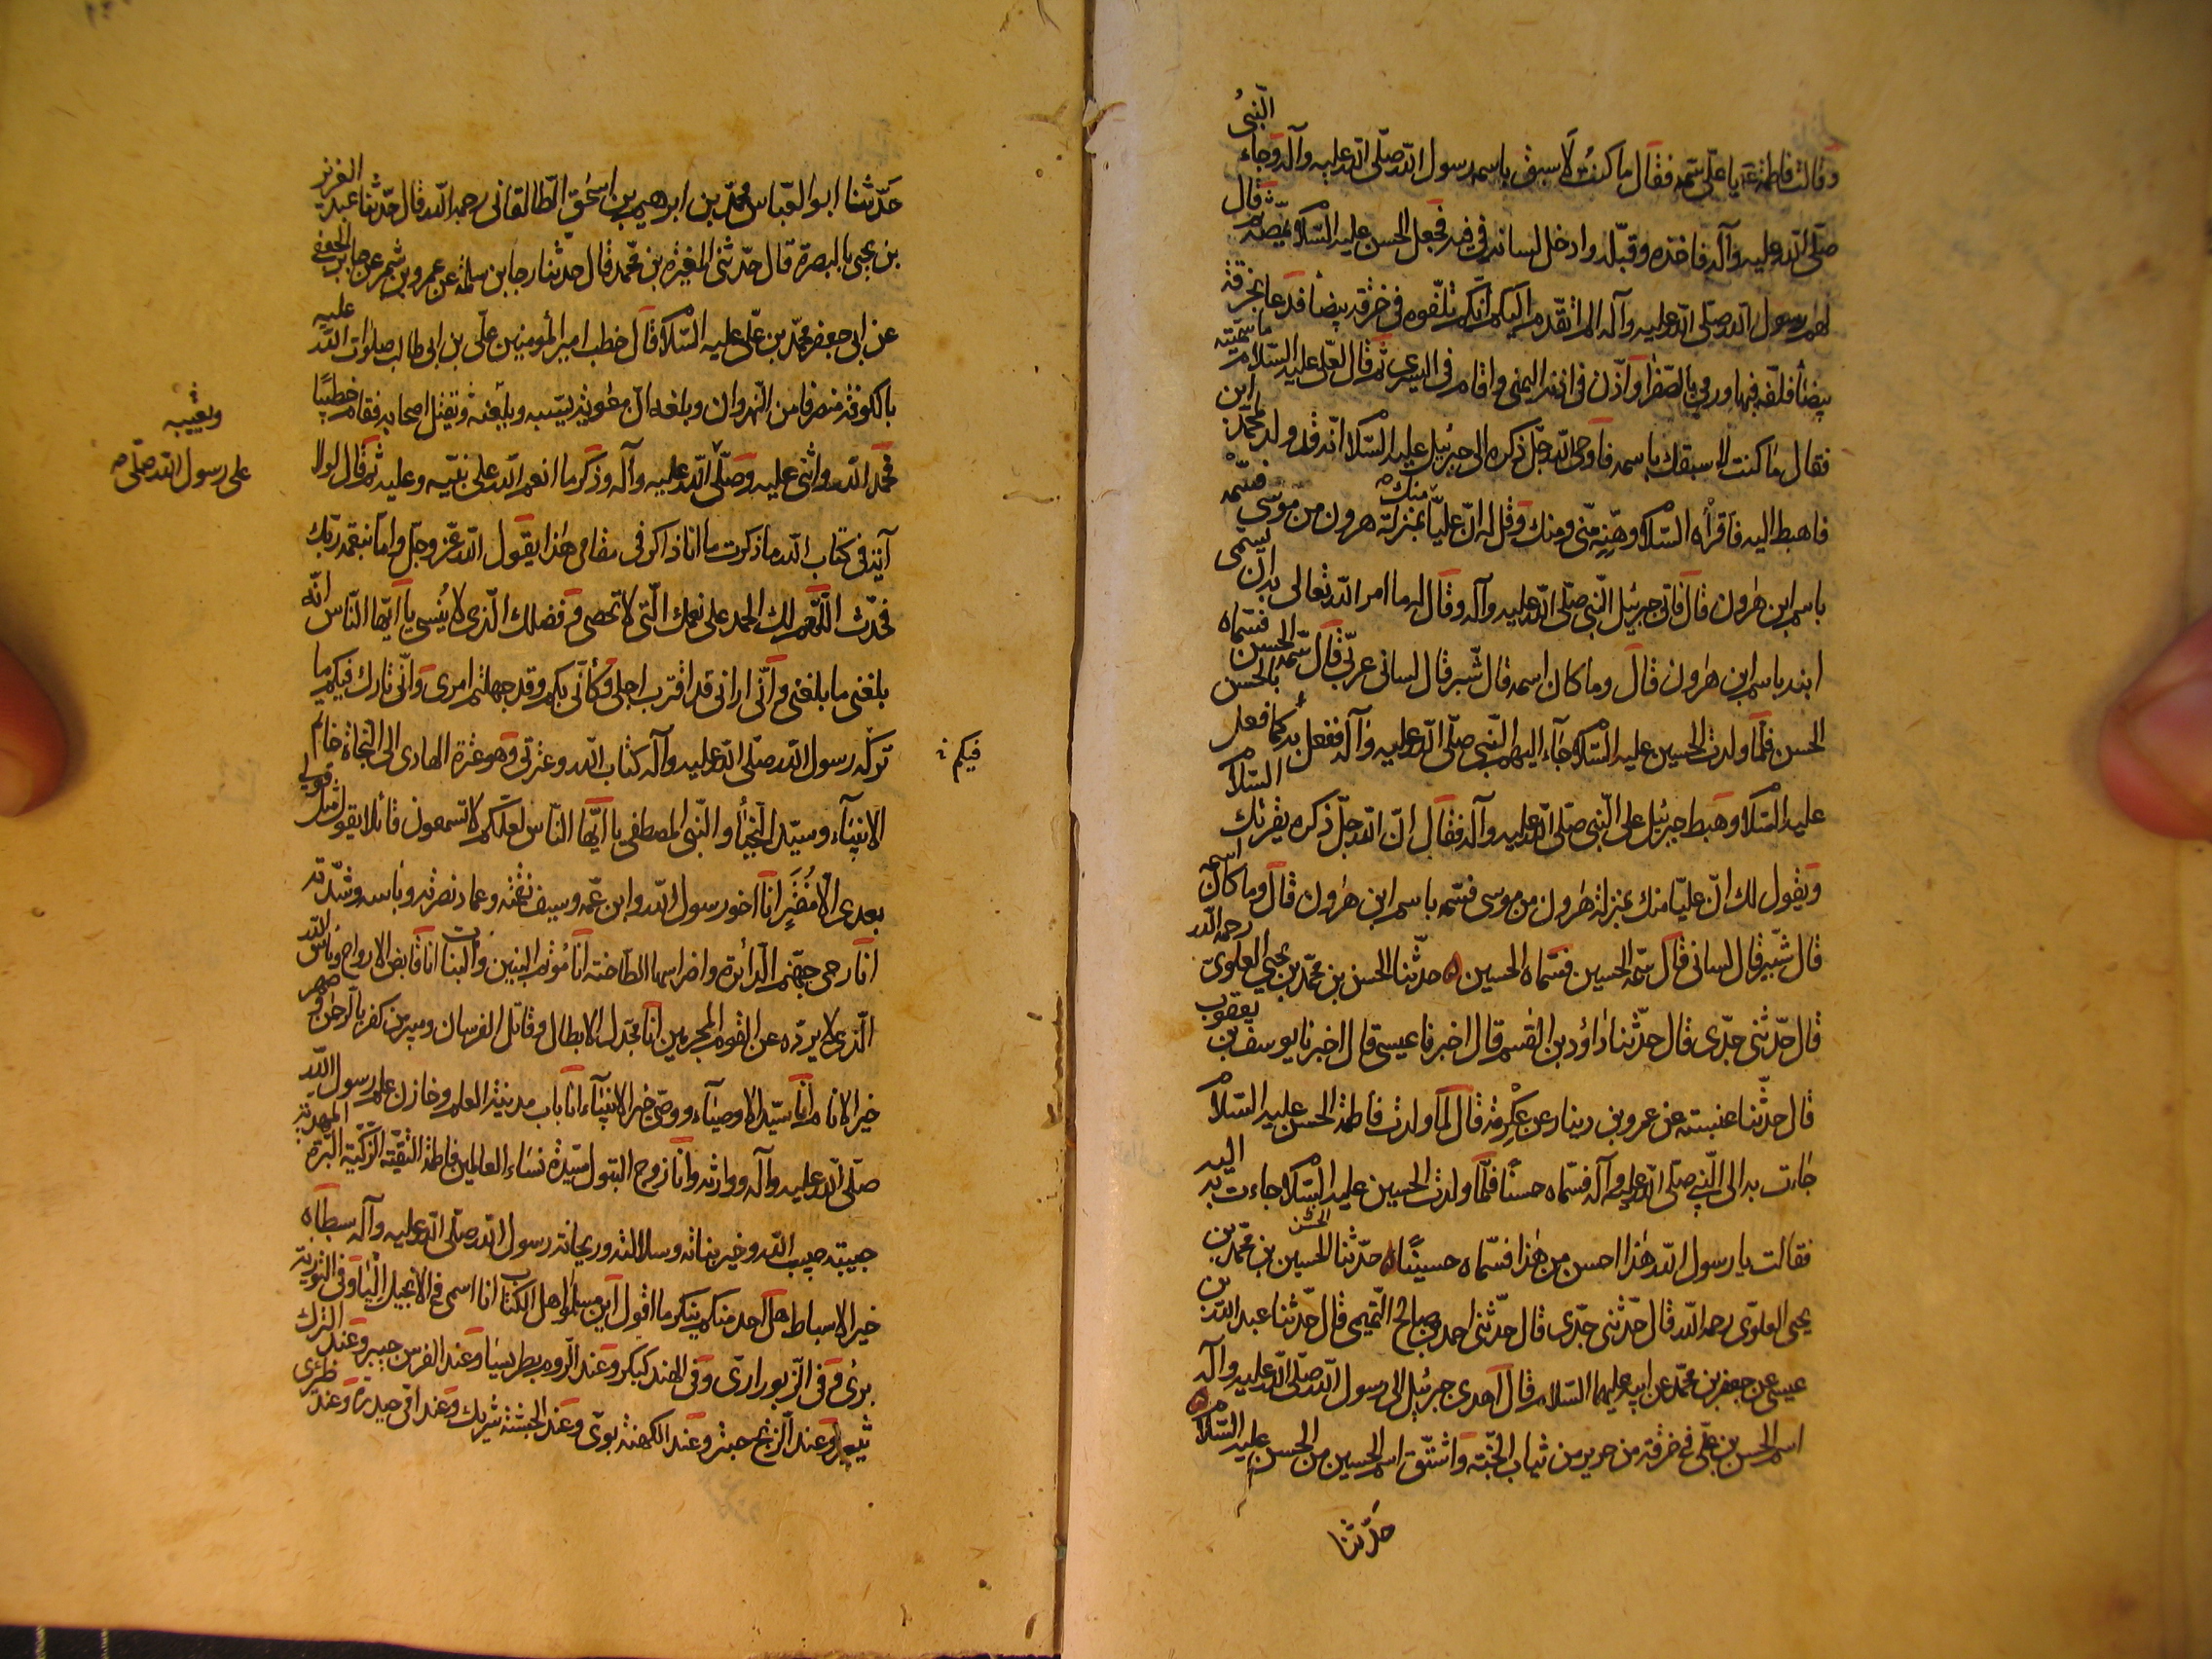 وقالت فاطمة ع يا علي سمه فقال ما كنت لاسبق باسمه رسول الله صلى الله عليه وآله وجاء النبى
صلى الله عليه وآله فاخذه وقبله وادخل لسانه في فيه فجعل الحسن عليه السلام يمصه ثم قال
لهم رسول الله صلى الله عليه وآله الم اتقدم اليكم انكم تلفوه في خرقة بيضا فدعا بخرقة
بيضا فلفه فيها ورمى بالصفرا واذن في اذنه اليمنى واقام في اليسرى ثم قال لعلى عليه السلام ما سميته
فقال ما كنت لاسبقك باسمه فاوحى الله جل ذكره الى جبرئيل عليه السلام انه قد ولد لمحمد ابن
فاهبط اليه فاقرأه السلام وهنه منى ومنك وقل له ان عليا منك بمنزلة هرون من موسى فسمه
باسم ابن هرون قال فاتى جبرئيل النبى صلى الله عليه وآله وقال له ما امر الله تعالى به ان يسمى
ابنه باسم ابن هرون قال وما كان اسمه قال شبر قال لسانى عربى قال سمه الحسن فسماه
الحسن فلما ولدت الحسين عليه السلام جاء اليهم النبى صلى الله عليه وآله ففعل به كما فعل بالحسن
عليه السلام وهبط جبرئيل على النبى صلى الله عليه وآله فقال ان الله جل ذكره يقرئك السلام
ويقول لك ان عليا منك بمنزلة هرون من موسى فسمه باسم ابن هرون قال وما كان اسمه
قال شبير قال لسانى قال سمه الحسين فسماه الحسين ه حدثنا الحسن بن محمد بن يحيى العلوى رحمه الله
قال حدثنى جدى قال حدثنا داود بن القسم قال اخبرنا عيسى قال اخبرنا يوسف بن يعقوب
قال حدثنا عنبسة عن عمرو بن دينار عن عكرمة قال لما ولدت فاطمة الحسن عليه السلام
جاءت به الى النبى صلى الله عليه وآله فسماه حسنا فلما ولدت الحسين عليه السلام جاءت به اليه
فقالت يا رسول الله هذا احسن من هذا فسماه حسينا ه حدثنا الحسين الحسن بن محمد بن
يحيى العلوى رحمه الله قال حدثنى جدى قال حدثنى احمد بن صالح التميمى قال حدثنا عبد الله بن
عيسى عن جعفر بن محمد عن ابيه عليهما السلام قال اهدى جبرئيل الى رسول الله صلى الله عليه وآله
اسم الحسن بن على في خرقة من حرير من ثياب الجنة واشتق اسم الحسين من الحسن عليه السلام ه
حدثنا
حدثنا ابو العباس محمد بن ابرهيم بن اسحق الطالقانى رحمه الله قال حدثنا عبد العزيز
بن يحيى بالبصرة قال حدثنى المغيرة بن محمد قال حدثنا رجا بن سلمة عن عمرو بن شمر عن جابر الجعفى
عن ابى جعفر محمد بن على عليه السلام قال خطب امير المؤمنين على بن ابى طالب صلوات الله عليه
بالكوفة منصرفا من النهروان وبلغه ان معوية يسبه ويلعنه ويقتل اصحابه فقام خطيبا
ويعيبه
فحمد الله واثنى عليه وصلى الله عليه وآله وذكر ما انعم الله على نبيه وعليه ثم قال لولا
على رسول الله صلى
آية في كتاب الله ما ذكرت ما انا ذاكر في مقامى هذا يقول الله عز وجل واما بنعمة ربك
فحدث اللهم لك الحمد على نعمك التى لا تحصى وفضلك الذى لا ينسى يا ايها الناس انه
بلغنى ما بلغنى وانى ارانى قد اقترب اجلى وكأنى بكم وقد جهلتم امرى وانى تارك فيكم ما
تركه رسول الله صلى الله عليه وآله كتاب الله وعترتى وهو عترة الهادى الى النجاة خاتم
فيكم
الانبياء وسيد النجباء والنبى المصطفى يا ايها الناس لعلكم لا تسمعون قائلا يقول مثل قولى
بعدى الا مفتر انا اخو رسول الله وابن عمه وسيف نقمته وعماد نصرته وباسه وشدته
انا رحى جهنم الدائرة واضراسها الطاحنة انا مؤتم البنين والبنات انا قابض الارواح وبأس الله
الذى لا يرده عن القوم المجرمين انا مجدل الابطال وقاتل الفرسان ومبير من كفر بالرحمن وصهر
خير الانام انا سيد الاوصياء ووصى خير الانبياء انا باب مدينة العلم وخازن علم رسول الله
صلى الله عليه وآله ووارثه وانا زوج البتول سيدة نساء العالمين فاطمة التقية الزكية البرة المهدية
حبيبة حبيب الله وخير بناته وسلالته وريحانة رسول الله صلى الله عليه وآله سبطاه
خير الاسباط هل احد منكم ينكر ما اقول اين مسلموا اهل الكتاب انا اسمى في الانجيل اليا وفى التورية
برى وفى الزبور ارى وفى الهند كبكر وعند الروم بطريسا وعند الفرس جبير وعند الترك
ثبير وعند الزنج حبتر وعند الكهنة بوى وعند الحبشة بثريك وعند امى حيدرة وعند ظئرى